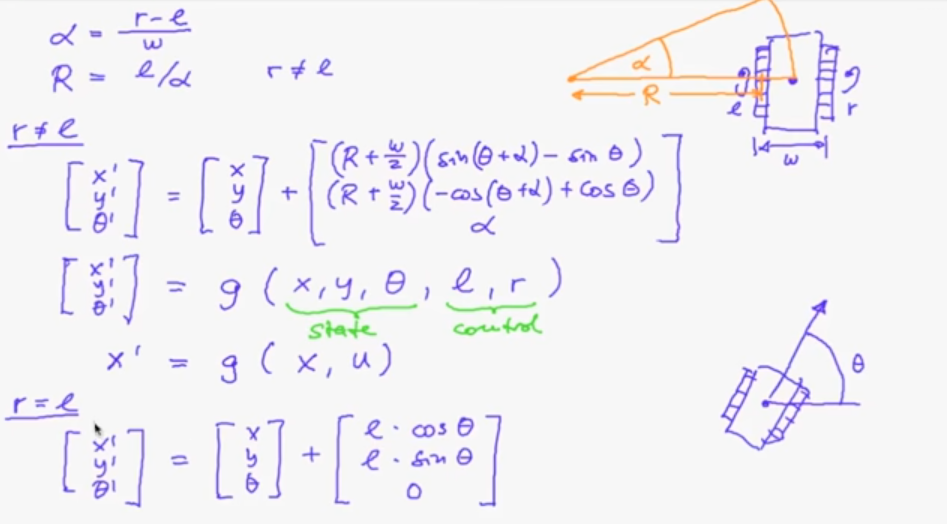 α = (r-l)/w
R = l/α    r ≠ l
α
R
l
r
w
r ≠ l
[x' y' θ'] = [x y θ] + [(R + w/2)(sin(θ+α) - sin θ)
(R + w/2)(-cos(θ+α) + cos θ)
α]
[x' y' θ'] = g (x, y, θ, l, r)
state    control
x' = g (x, u)
θ
r = l
[x' y' θ'] = [x y θ] + [l · cos θ
l · sin θ
0]